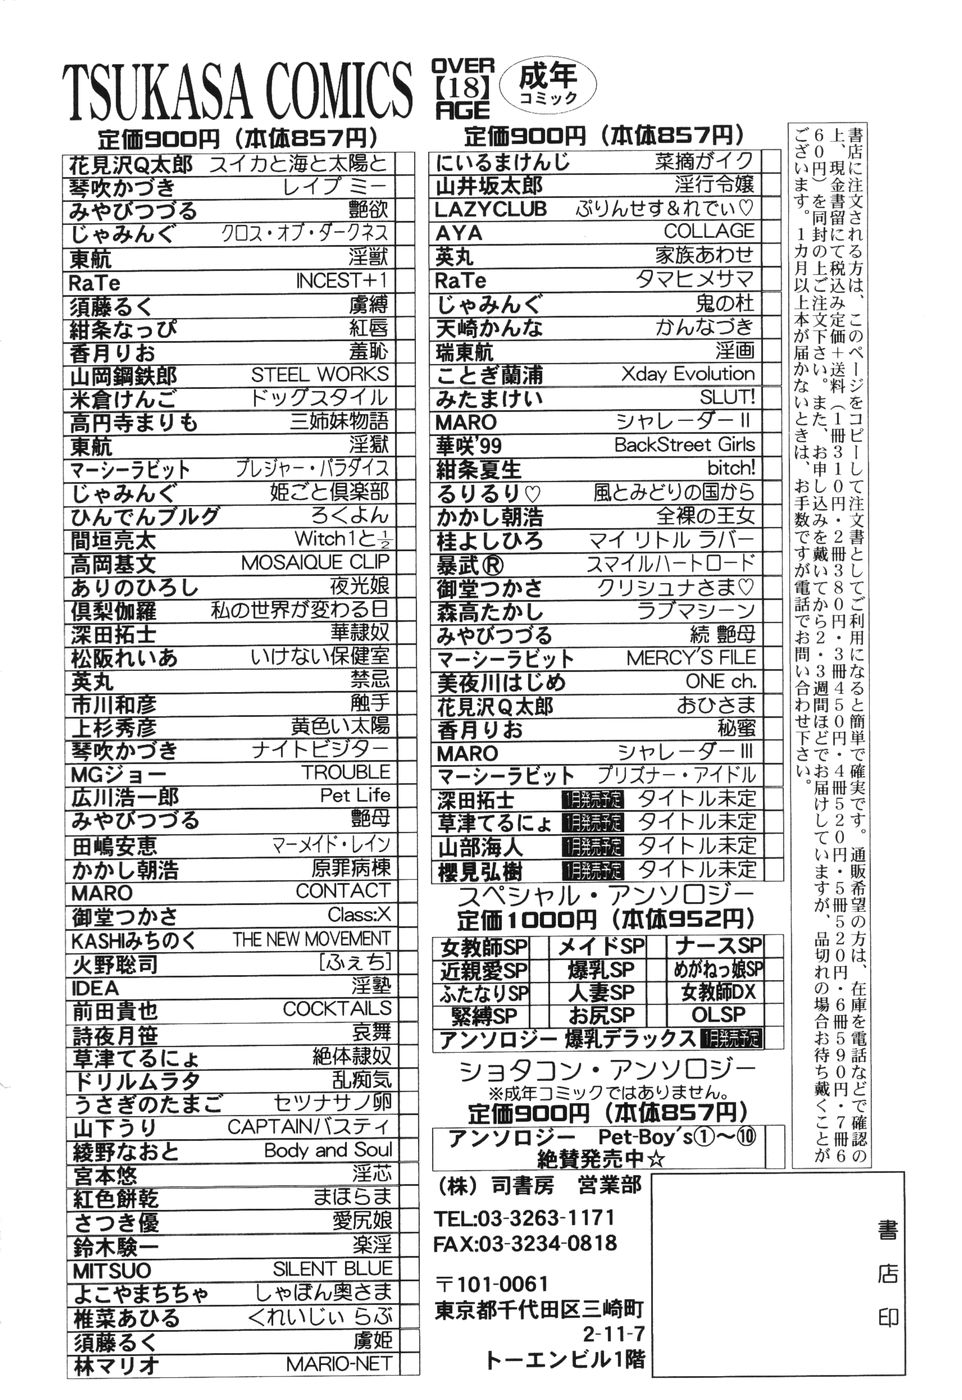 TSUKASA COMICS
OVER
【18】
AGE
成年
コミック
定価900円（本体857円）
花見沢Q太郎 スイカと海と太陽と
琴吹かづき レイプ ミー
みやびつづる 艶欲
じゃみんぐ クロス・オブ・ダークネス
東航 淫獣
RaTe INCEST+1
須藤るく 虜縛
紺条なっぴ 紅唇
香月りお 羞恥
山岡鋼鉄郎 STEEL WORKS
米倉けんご ドッグスタイル
高円寺まりも 三姉妹物語
東航 淫獄
マーシーラビット プレジャー・パラダイス
じゃみんぐ 姫ごと倶楽部
ひんでんブルグ ろくよん
間垣亮太 Witch1と1/2
高岡基文 MOSAIQUE CLIP
ありのひろし 夜光娘
倶梨伽羅 私の世界が変わる日
深田拓士 華隷奴
松阪れいあ いけない保健室
英丸 禁忌
市川和彦 触手
上杉秀彦 黄色い太陽
琴吹かづき ナイトビジター
MGジョー TROUBLE
広川浩一郎 Pet Life
みやびつづる 艶母
田嶋安恵 マーメイド・レイン
かかし朝浩 原罪病棟
MARO CONTACT
御堂つかさ Class:X
KASHIみちのく THE NEW MOVEMENT
火野聡司 [ふぇち]
IDEA 淫塾
前田貴也 COCKTAILS
詩夜月笹 哀舞
草津てるにょ 絶体隷奴
ドリルムラタ 乱痴気
うさぎのたまご セツナサノ卵
山下うり CAPTAINバスティ
綾野なおと Body and Soul
宮本悠 淫芯
紅色餅乾 まほらま
さつき優 愛尻娘
鈴木験一 楽淫
MITSUO SILENT BLUE
よこやまちちゃ しゃぼん奥さま
椎菜あひる くれいじぃ らぶ
須藤るく 虜姫
林マリオ MARIO-NET
定価900円（本体857円）
にいるまけんじ 菜摘がイク
山井坂太郎 淫行令嬢
LAZYCLUB ぷりんせす&れでぃ♡
AYA COLLAGE
英丸 家族あわせ
RaTe タマヒメサマ
じゃみんぐ 鬼の杜
天崎かんな かんなづき
瑞東航 淫画
ことぎ蘭浦 Xday Evolution
みたまけい SLUT!
MARO シャレーダーⅡ
華咲'99 BackStreet Girls
紺条夏生 bitch!
るりるり♡ 風とみどりの国から
かかし朝浩 全裸の王女
桂よしひろ マイ リトル ラバー
暴武Ⓡ スマイルハートロード
御堂つかさ クリシュナさま♡
森高たかし ラブマシーン
みやびつづる 続 艶母
マーシーラビット MERCY'S FILE
美夜川はじめ ONE ch.
花見沢Q太郎 おひさま
香月りお 秘蜜
MARO シャレーダーⅢ
マーシーラビット プリズナー・アイドル
深田拓士 1月発売予定 タイトル未定
草津てるにょ 1月発売予定 タイトル未定
山部海人 1月発売予定 タイトル未定
櫻見弘樹 1月発売予定 タイトル未定
スペシャル・アンソロジー
定価1000円（本体952円）
女教師SP メイドSP ナースSP
近親愛SP 爆乳SP めがねっ娘SP
ふたなりSP 人妻SP 女教師DX
緊縛SP お尻SP OLSP
アンソロジー 爆乳デラックス 1月発売予定
ショタコン・アンソロジー
※成年コミックではありません。
定価900円（本体857円）
アンソロジー Pet-Boy's①〜⑩
絶賛発売中☆
（株）司書房 営業部
TEL:03-3263-1171
FAX:03-3234-0818
〒101-0061
東京都千代田区三崎町
2-11-7
トーエンビル1階
書店に注文される方は、このページをコピーして注文書としてご利用になると簡単で確実です。通販希望の方は、在庫を電話などで確認の
上、現金書留にて税込み定価＋送料（1冊310円・2冊380円・3冊450円・4冊520円・5冊520円・6冊590円・7冊6
60円）を同封の上ご注文下さい。また、お申し込みを戴いてから2・3週間ほどでお届けしていますが、品切れの場合お待ち戴くことが
ございます。1カ月以上本が届かないときは、お手数ですが電話でお問い合わせ下さい。
書店印